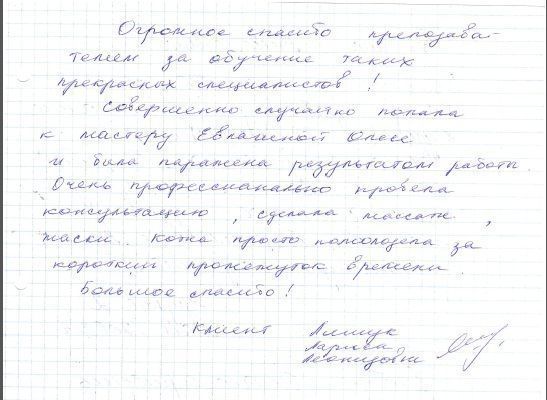 Огромное спасибо преподава-
телям за обучение таких
прекрасных специалистов!
Совершенно случайно попала
к мастеру Евлашкиной Олесе
и была паражена результатом работы.
Очень профессионально провела
консультацию, сделала массаж,
маски. Кожа просто помолодела за
короткий промежуток времени.
Большое спасибо!
Клиент
Лариса
Леонидовна